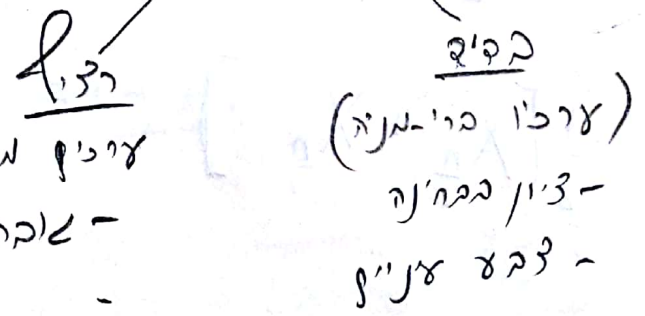 בדיד
(ערכיו בני-מניה)
- ציון בבחינה
- צבע עיניים
רציף
ערכים
- גובה
-